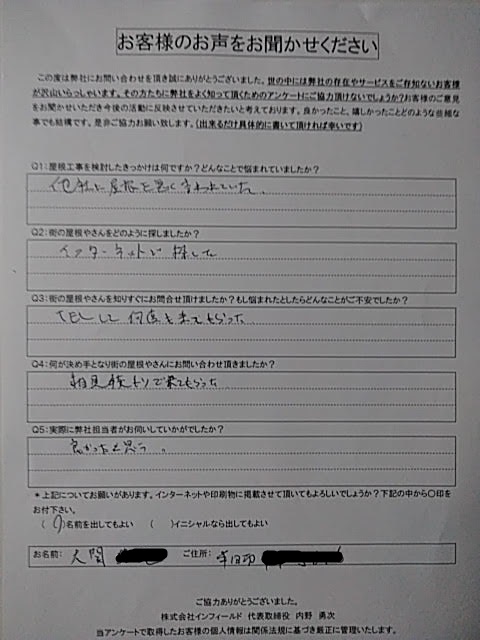 お客様のお声をお聞かせください
この度は弊社にお問い合わせを頂き誠にありがとうございました。世の中には弊社の存在やサービスをご存知ないお客様
が沢山いらっしゃいます。その方たちに弊社をよく知って頂くためのアンケートにご協力頂けないでしょうか?お客様のご意見
をお聞かせいただき今後の活動に反映させていただきたいと考えております。良かったこと、嬉しかったことどのような些細な
事でも結構です。是非ご協力お願い致します。(出来るだけ具体的に書いて頂ければ幸いです)
Q1:屋根工事を検討したきっかけは何ですか?どんなことで悩まれていましたか?
他社に屋根を悪く言われていた。
Q2:街の屋根やさんをどのように探しましたか?
インターネットで探した
Q3:街の屋根やさんを知りすぐにお問合せ頂けましたか?もし悩まれたとしたらどんなことがご不安でしたか?
TELして何度も来てもらった
Q4:何が決め手となり街の屋根やさんにお問い合わせ頂きましたか?
相見積トリで来てもらった
Q5:実際に弊社担当者がお伺いしていかがでしたか?
良かったと思う。
*上記についてお願いがあります。インターネットや印刷物に掲載させて頂いてもよろしいでしょうか?下記の中から〇印を
お付下さい。
( )名前を出してもよい ( )イニシャルなら出してもよい
お名前: ご住所:
ご協力ありがとうございました。
株式会社インフィールド 代表取締役 内野 勇次
当アンケートで取得したお客様の個人情報は関係法規に基づき厳正に管理いたします。